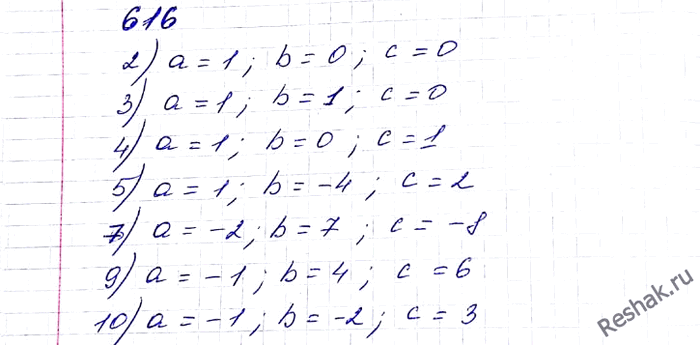 616
2) a = 1 ; b = 0 ; c = 0
3) a = 1 ; b = 1 ; c = 0
4) a = 1 ; b = 0 ; c = 1
5) a = 1 ; b = -4 ; c = 2
7) a = -2 ; b = 7 ; c = -8
9) a = -1 ; b = 4 ; c = 6
10) a = -1 ; b = -2 ; c = 3
Reshak.ru